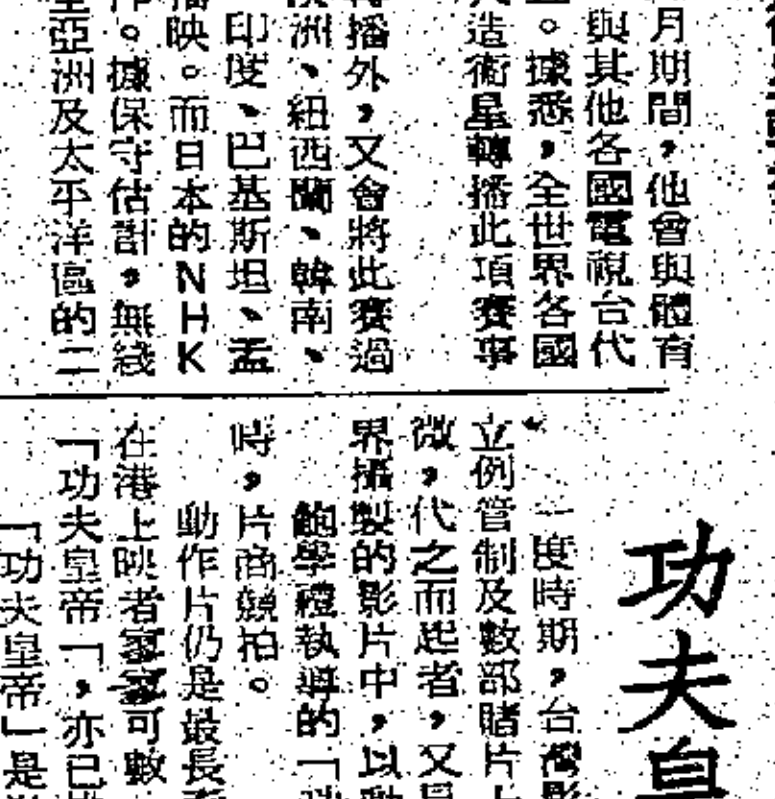 月期間,他曾與體育
與其他各國電視台代
。據悉,全世界各國
造衛星轉播此項賽事
播外,又會將此賽過
洲、紐西蘭、韓南、
印度、巴基斯坦、孟
映。而日本的NHK
。據保守估計,無綫
亞洲及太平洋區的二
功夫皇
一度時期,台灣影
立例管制及數部賭片上
微,代之而起者,又是
界攝製的影片中,以動
鮑學禮執導的「
時,片商競拍。
動作片仍是最長
在港上映者寥寥可數
「功夫皇帝」,亦已
「功夫皇帝」是